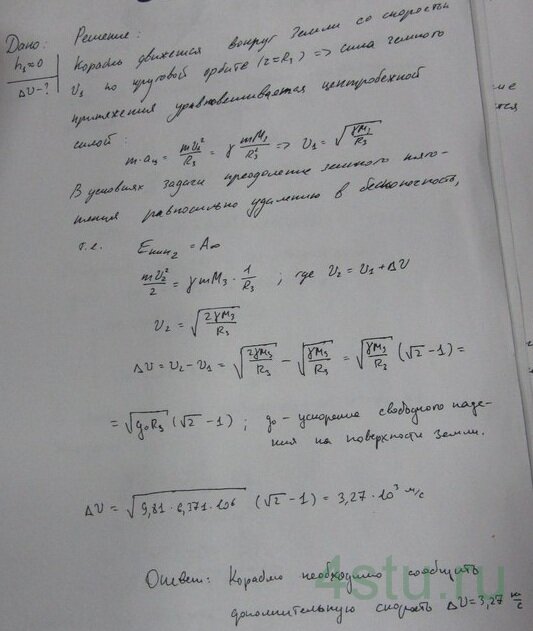 Дано: Решение:
h₁≈0 Корабль движется вокруг Земли со скоростью
ΔU-? U₁ по круговой орбите (r=R₃) => сила земного
притяжения уравновешивается центробежной
силой:
m·aц = mU₁²/R₃ = γ mM₃/R₃² => U₁ = √(γM₃/R₃)
В условиях задачи преодоление земного притя-
жения равносильно удалению в бесконечность,
т.е. Eкин₂ = A∞
mU₂²/2 = γmM₃ · 1/R₃ ; где U₂ = U₁ + ΔU
U₂ = √(2γM₃/R₃)
ΔU = U₂ - U₁ = √(2γM₃/R₃) - √(γM₃/R₃) = √(γM₃/R₃) (√2 -1) =
= √(g₀R₃) (√2 -1) ; g₀ - ускорение свободного паде-
ния на поверхности Земли.
ΔU = √(9,81·6,371·10⁶) (√2 -1) = 3,27·10³ м/с
Ответ: Кораблю необходимо сообщить
дополнительную скорость ΔU = 3,27 км/с
4stu.ru